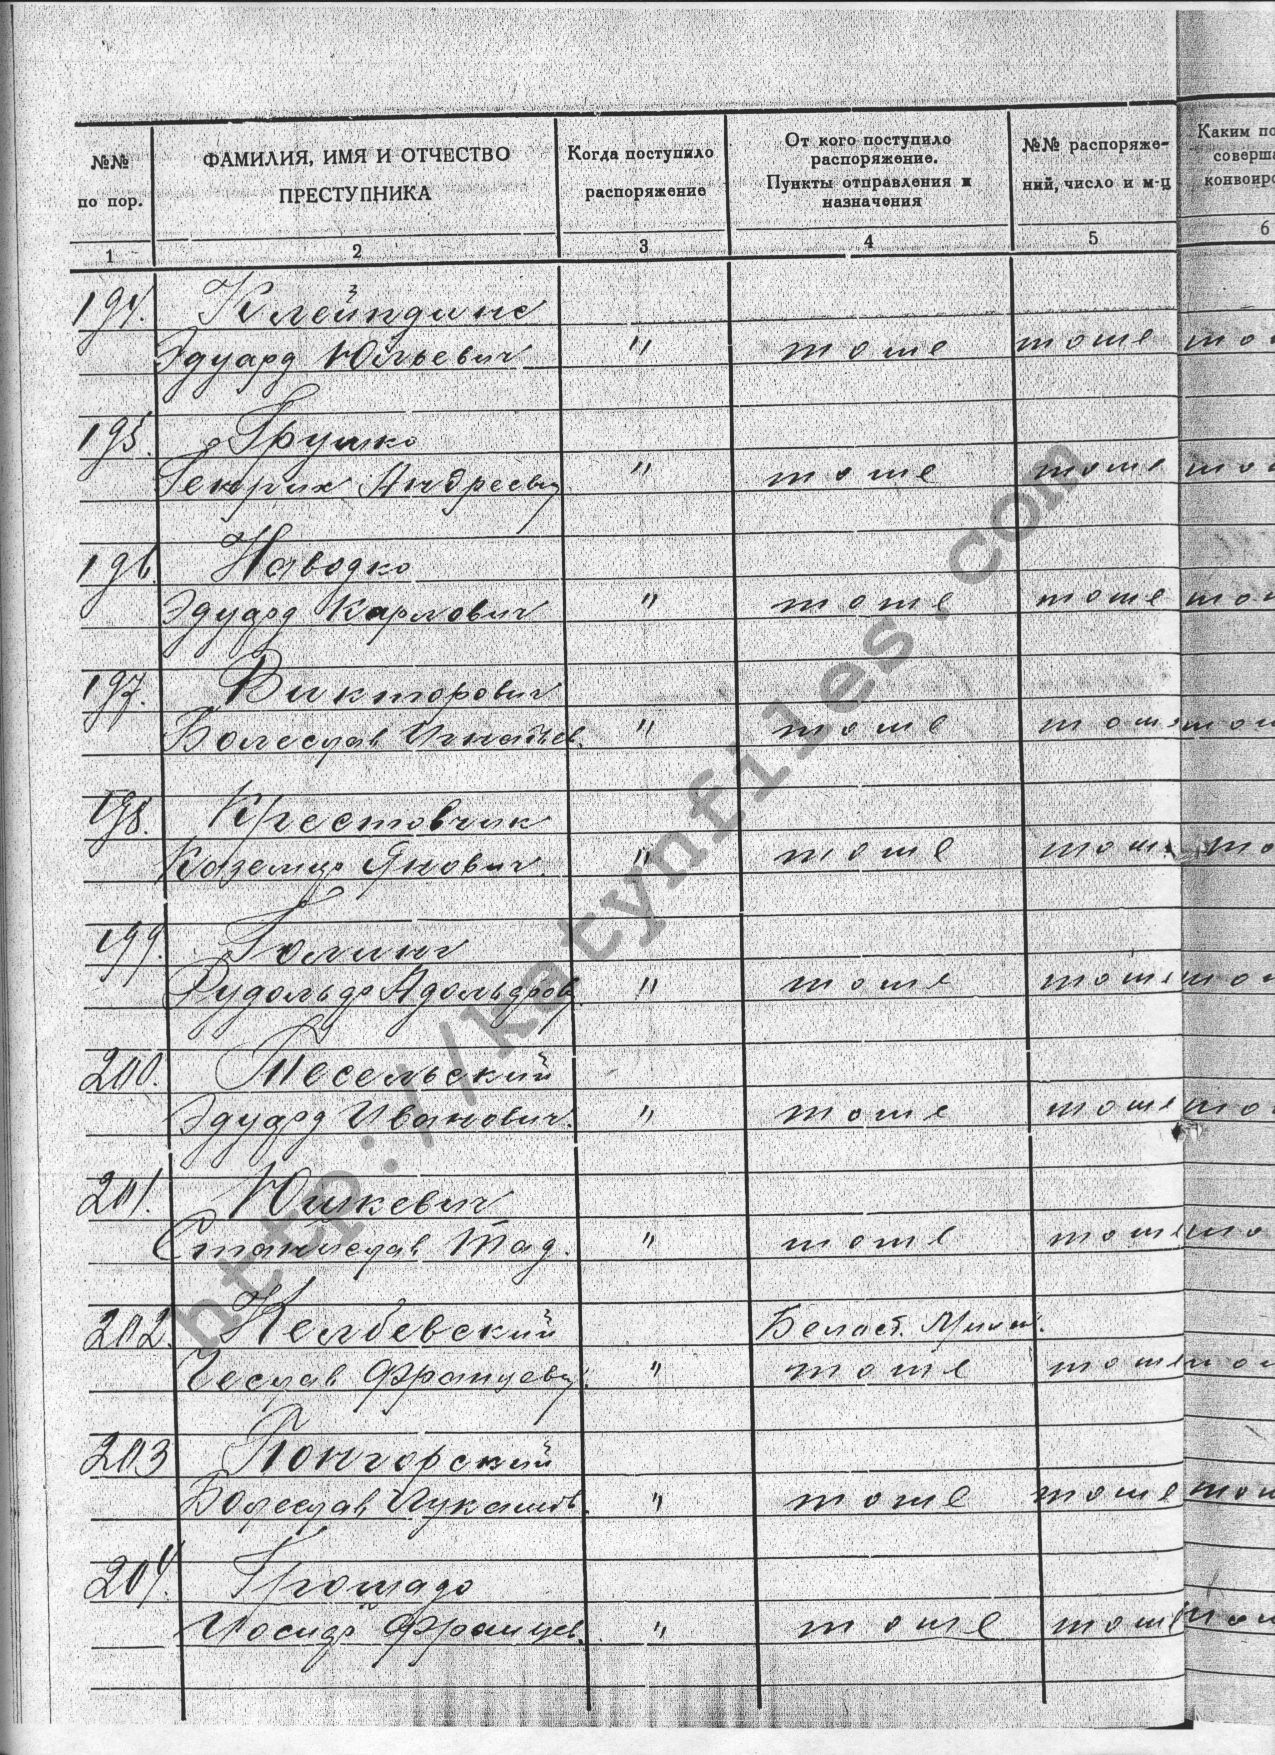 №№ по пор.
ФАМИЛИЯ, ИМЯ И ОТЧЕСТВО ПРЕСТУПНИКА
Когда поступило распоряжение
От кого поступило распоряжение. Пункты отправления и назначения
№№ распоряже-ний, число и м-ц
Каким по
соверша
конвоиро
1 2 3 4 5 6
194. Клейндинс
Эдуард Юльевич " тоже тоже то
195. Грушко
Генрих Андреевич " тоже тоже то
196. Наводко
Эдуард Карлович " тоже тоже то
197. Викторович
Болеслав Игнатьев. " тоже тоже то
198. Крестовчик
Каземир Янович. " тоже тоже то
199. Голинг
Рудольф Адольфов " тоже тоже то
200. Песельский
Эдуард Иванович. " тоже тоже то
201. Юшкевич
Станислав Тад. " тоже тоже то
202. Келбевский Беласт.
Чеслав Францев " тоже тоже то
203 Понгорский
Болеслав Лукашов. " тоже тоже то
204. Громадо
Иосиф Францев. " тоже тоже то
http://katynfiles.com